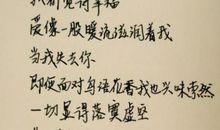 我都觉得幸福
爱像一股暖流滋润着我
当我失去你
即使面对鸟语花香我也兴味索然
一切显得落寞虚空